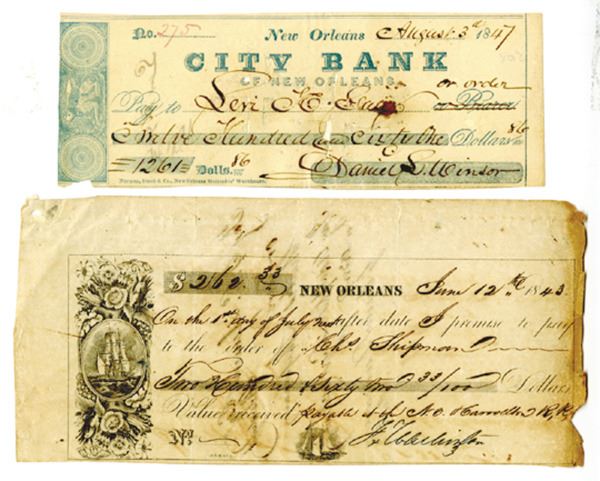 No. 275 New Orleans August 3d 1847
CITY BANK
OF NEW ORLEANS
or order
Pay to Levi H. or Bearer
Twelve Hundred and Sixty One Dollars 86
1261 Dolls. 86
Daniel L. Winsor
$ 262.33 NEW ORLEANS June 12th 1843
On the 1st day of July next after date I promise to pay
to the order of Chs Shipman
Two Hundred & Sixty two 33/100 Dollars
Value received payable at of N.O. & Carrollton R.R.
No.